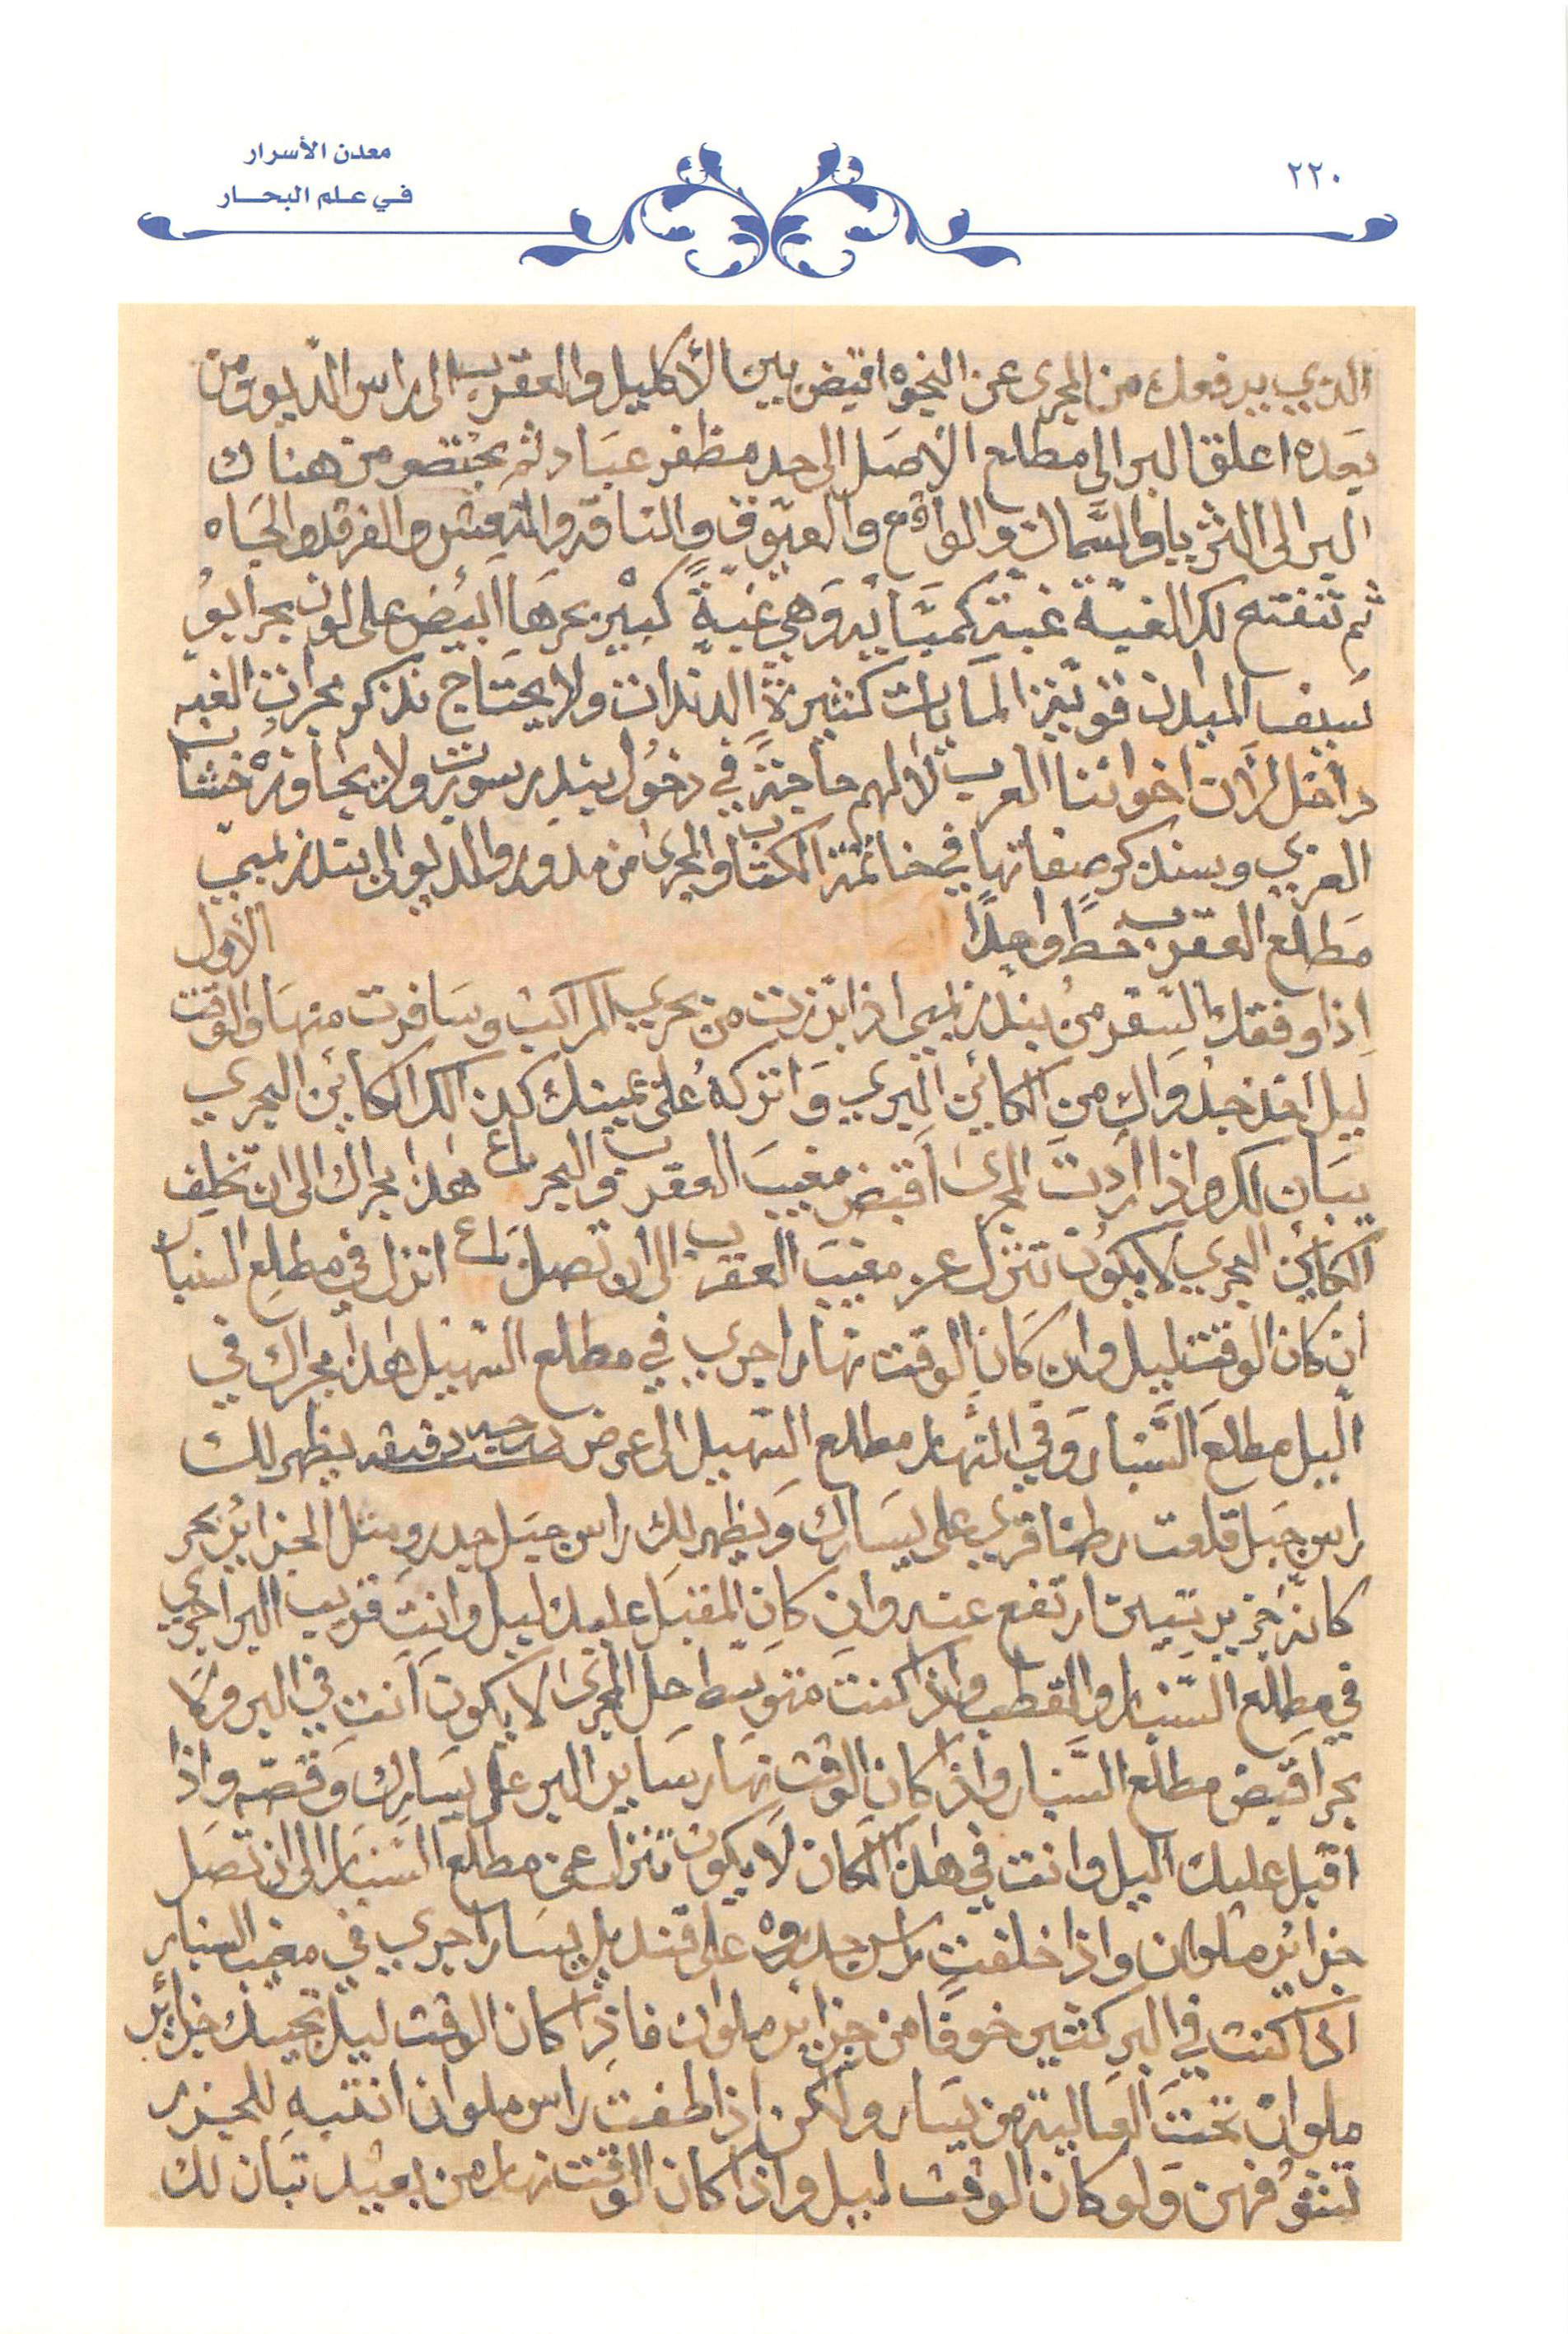 ٢٢٠
معدن الأسرار
في علم البحار
الذي يدفعك من المجرى عن النجوه اقبض بين الأكليل والعقرب الى راس الديو ومن
بعده اعلق البر الى مطلع الاصل الى حد مظفر عباد ثم يختضع من هناك
البر الى الثريا والسماك والواقع والعيوق والناقة والنعش والفرقد والجاه
ثم تنفتح لك الغبة غبة كمباية وهي غبةً كبير بحرها ابيض على لون بحر ابو
سيف الميدان قوية المايات كثيرة الدندات ولا يحتاج نذكر مجرات الغبه
داخل لأن اخواننا العرب لا لهم حاجة في دخول بندر سورت ولا يجاوزه خشاب
العربي وسنذكر صفاتها في خاتمة الكتاب والمجرى من مدور والديو الى بندر لمبي
مطلع العقرب خطًا واحدًا الأول
إذا وفقك السفر من بندر لمبي اذا برزت من بحري المراكب وسافرت منها والوقت
ليل اخذ خذواك من الكائن البري واتركه على يمينك كذلك الكائن البحري
يبان لك واذا أردت المجرى أقبض مغيب العقرب والبحر باع هذا مجراك الى ان تخلف
الكائن البحري لا يكون تنزل عن مغيب العقرب الى ان تصل باع انزل في مطلع السنبار
ان كان الوقت ليل وان كان الوقت نهار اجري في مطلع السهيل هذا مجراك في
اليل مطلع السنبار وفي النهار مطلع السهيل الى عرض درجه دقيقه يظهر لك
راس جبل قلعت رطنا قري على يسارك ويظهر لك راس جبل جدرو مثل الجزائر بحر
كانه جزيرتين ارتفع عنه وان كان المقبل عليك ليل وانت قريب البر اجري
في مطلع السنبار والقطب واذا كنت متوسط حل المجرى لا يكون أنت في البر ولا
بحر اقبض مطلع السنبار واذا كان الوقت نهار ساير البر على يسارك وقصه واذا
اقبل عليك اليل وانت في هذا المكان لا يكون تنزل عن مطلع السنبار الى ان تصل
جزائر ملوان واذا خلفت راس جدروه على قنديل يسار اجري في مغيب السنبار
اذا كنت في البر كثير خوفًا من جزاير ملوان فاذا كان الوقت ليل تجيك جزائر
ملوان تحت العالية من يسار ولكن إذا طفت راس ملوان انتبه للجزر
تنثوفهن ولو كان الوقت ليل واذا كان الوقت نهار من بعيد تبان لك